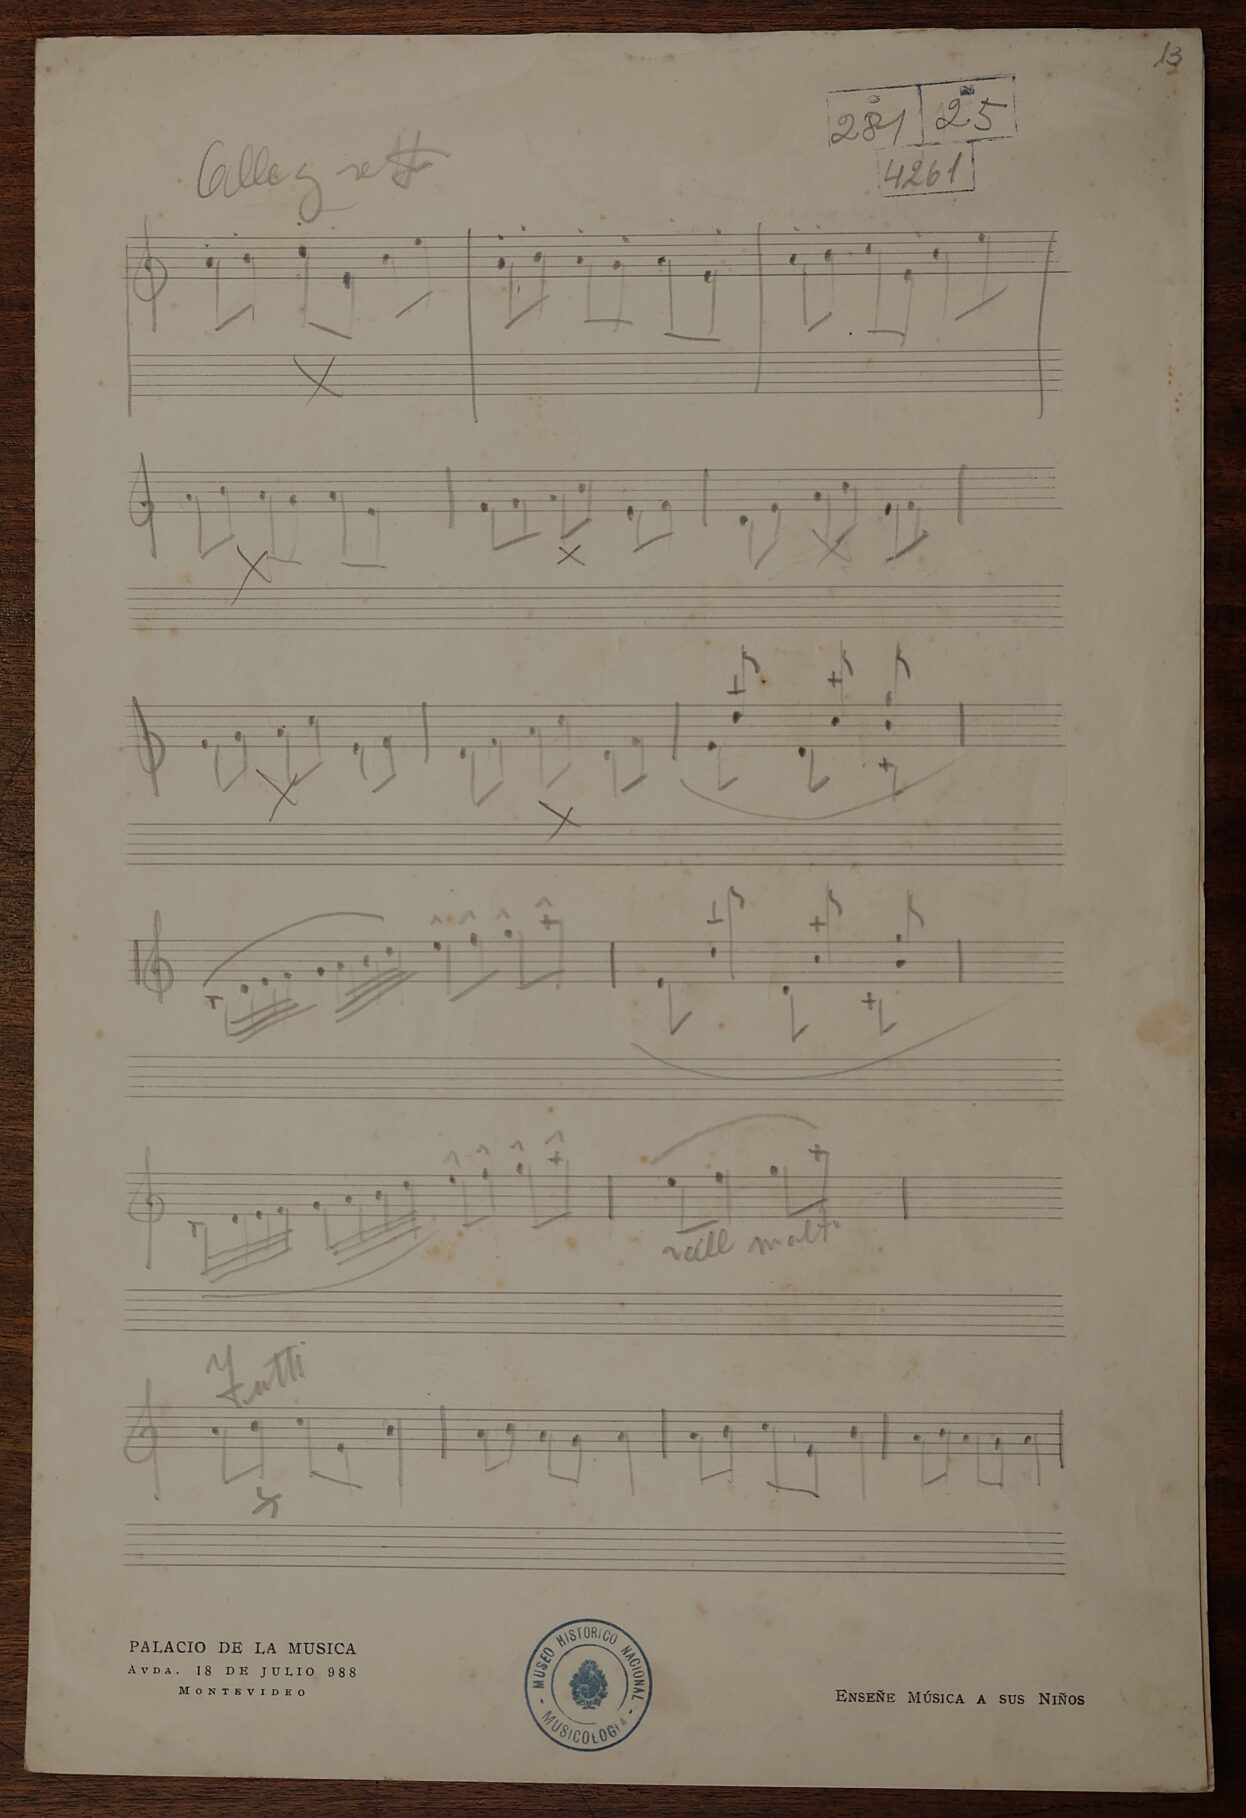 13
281 25
4261
Allegretto
rall molto
Tutti
PALACIO DE LA MUSICA
AVDA. 18 DE JULIO 988
MONTEVIDEO
MUSEO HISTORICO NACIONAL
- MUSICOLOGIA -
ENSEÑE MÚSICA A SUS NIÑOS